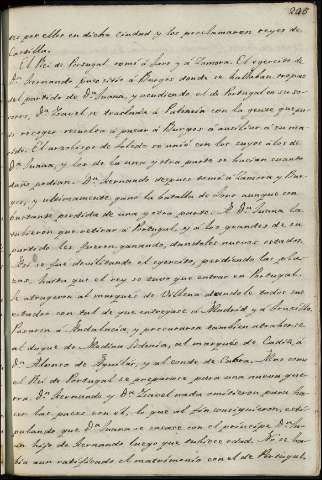 205
se por ellos en dicha ciudad y los proclamaron reyes de
Castilla.
El Rei de Portugal tomó á Toro y á Zamora. El egercito de
Dn. Fernando puso sitio á Burgos donde se hallaban tropas
del partido de Da. Juana, y acudiendo el de Portugal en su so-
corro, Da. Ysavel se traslada á Palencia con la gente que pu-
do recoger resuelta á pasar á Burgos á auxiliar á su ma-
rido. El arzobispo de Toledo se unió con los suyos á los de
Da. Juana, y los de la una y otra parte se hacian cuanto
daño podian. Dn. Fernando despues tomó á Zamora y Bur-
gos, y ultimamente ganó la batalla de Toro aunque con
bastante perdida de una y otra parte. A Da. Juana la
tubieron que retirar á Portugal, y á los grandes de su
partido les fueron ganando, dandoles nuevos estados.
Asi se fue devilitando el egercito, perdiendo las pla-
zas, hasta que el rey se tuvo que entrar en Portugal.
Se atrageron al marqués de Villena dandole todos sus
estados con tal de que entregase á Madrid y á Trugillo.
Pasaron á Andalucia, y procuraron tambien atraherse
al duque de Medina Sidonia, al marqués de Cadiz, á
Dn. Alonso de Aguilar, y al conde de Cabra. Mas como
el Rei de Portugal se preparase para una nueva gue-
rra. Dn. Fernando y Da. Ysavel nada omitieron para ha-
cer las paces con él, lo que al fin consiguieron, esti-
pulando que Da. Juana se casase con el príncipe Dn. Ju-
an hijo de Fernando luego que tubiese edad. No se ha-
bia aun ratificado el matrimonio con el de Portugal,